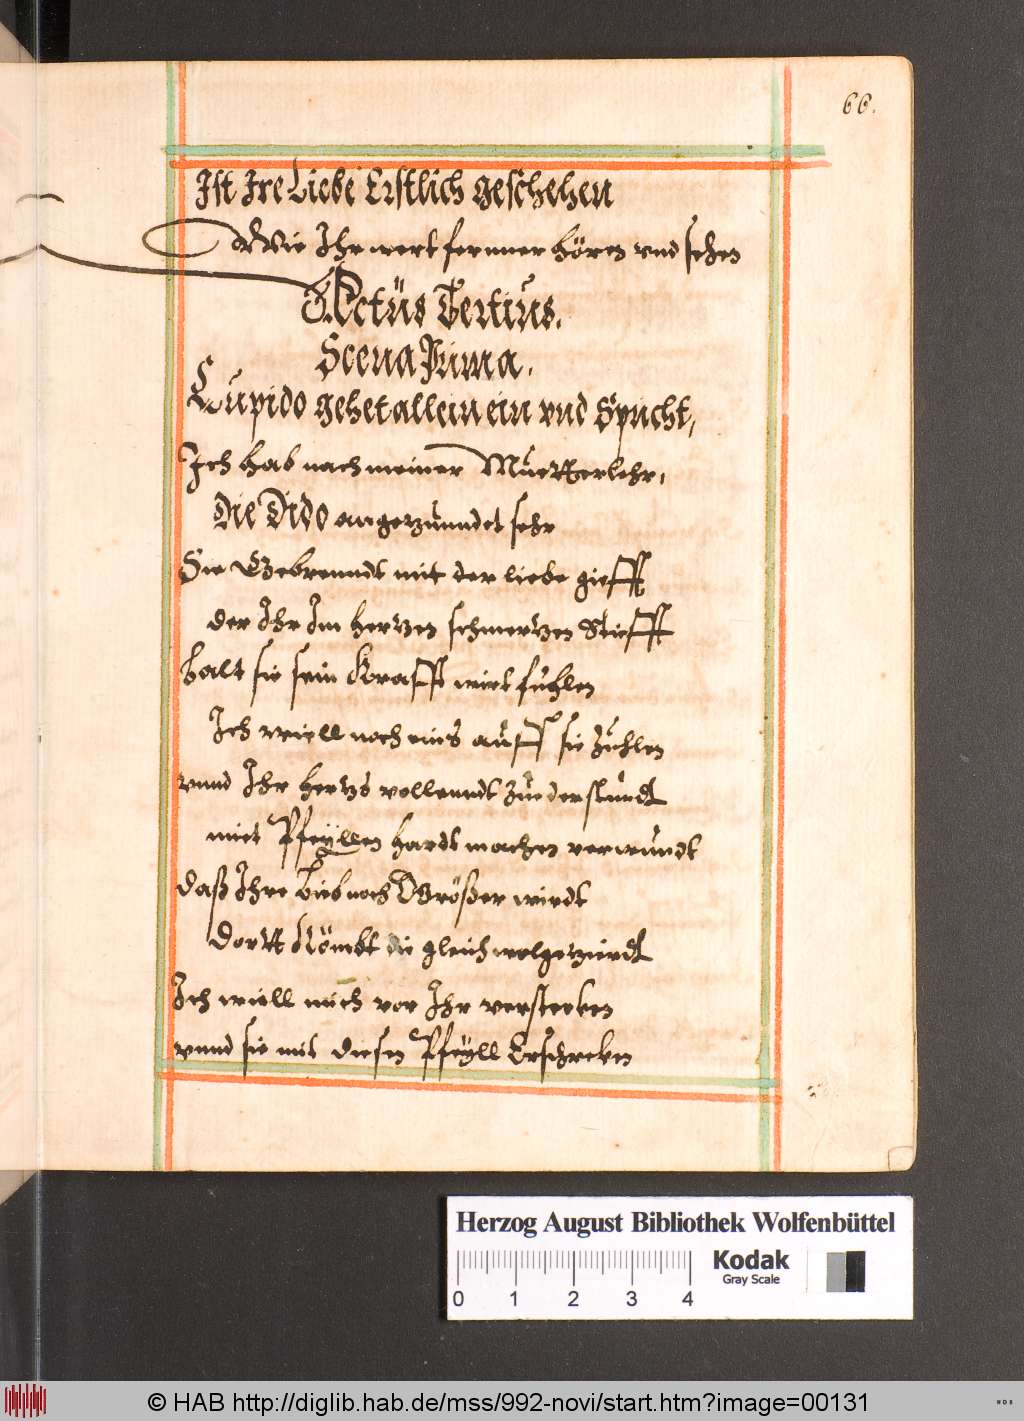 66.
Ist Ire Liebe Erstlich geschehen
Wie Ihr wert fernner hören vnd sehen
Actüs Tertius.
Scena Prima.
Cupido gehet allein ein vnd Spricht,
Ich hab nach meiner Muetter lehr,
die Dido angezünndet sehr
Sie Gebrenndt mit der liebe giefft
der Ihr Im hertzen schmertzen Stiefft
Balt sie sein Krafft wirt fuhlen
Ich wiell noch eins auff sie Zuhlen
vnnd Ihr hertzs vollenndt Zue der stundt
miet Pfeÿllen hardt machen verwundt
daß Ihre Lieb noch Größer wirdt
dortt Kömbt die gleich wolgezierdt
Ich wiell mich vor Ihr verstecken
vnnd sie mit diesen Pfeÿll Erschreken
Herzog August Bibliothek Wolfenbüttel
Kodak
Gray Scale
0 1 2 3 4
© HAB http://diglib.hab.de/mss/992-novi/start.htm?image=00131